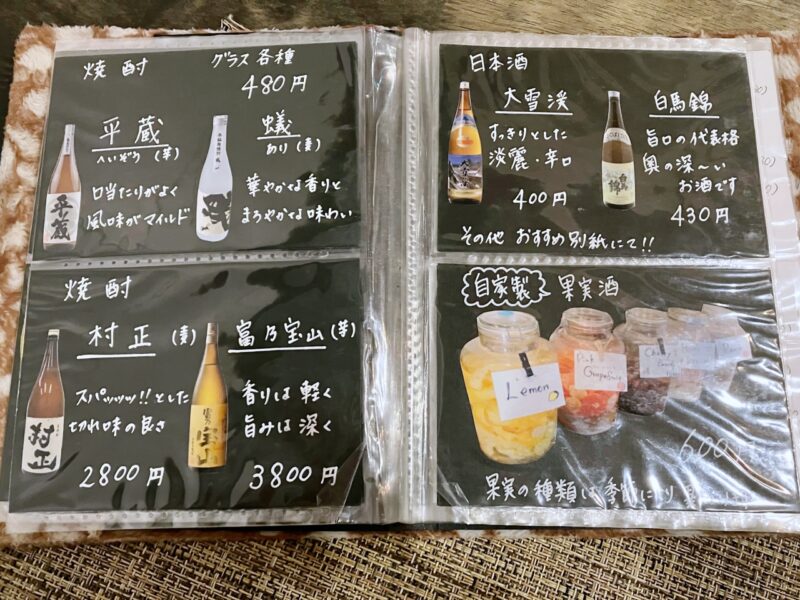 焼酎 グラス各種
480円
平蔵
へいぞう (芋)
口当たりがよく
風味がマイルド
平蔵
蟻
あり (麦)
華やかな香りと
まろやかな味わい
焼酎
村正 (麦)
スパッッッ!!とした
切れ味の良さ
2800円
村正
富乃宝山 (芋)
香りは軽く
旨みは深く
3800円
宝山
日本酒
大雪渓
すっきりとした
淡麗・辛口
400円
白馬錦
旨口の代表格
奥の深〜い
お酒です
430円
その他 おすすめ別紙にて!!
自家製 果実酒
Lemon
Pink
Grapefruit
600円
果実の種類は季節により